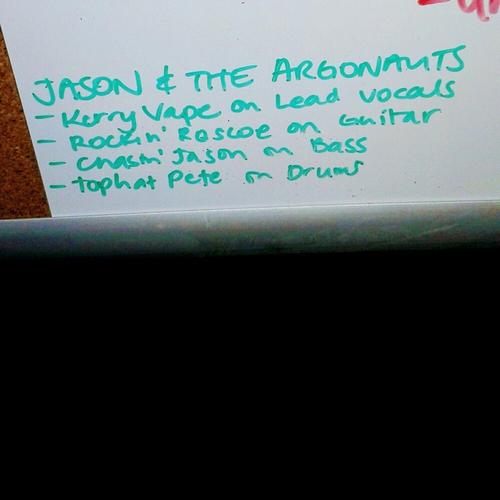 JASON & THE ARGONAUTS
- Kerry Vape on Lead vocals
- Rockin' Roscoe on Guitar
- Chasin' Jason on Bass
- Tophat Pete on Drums